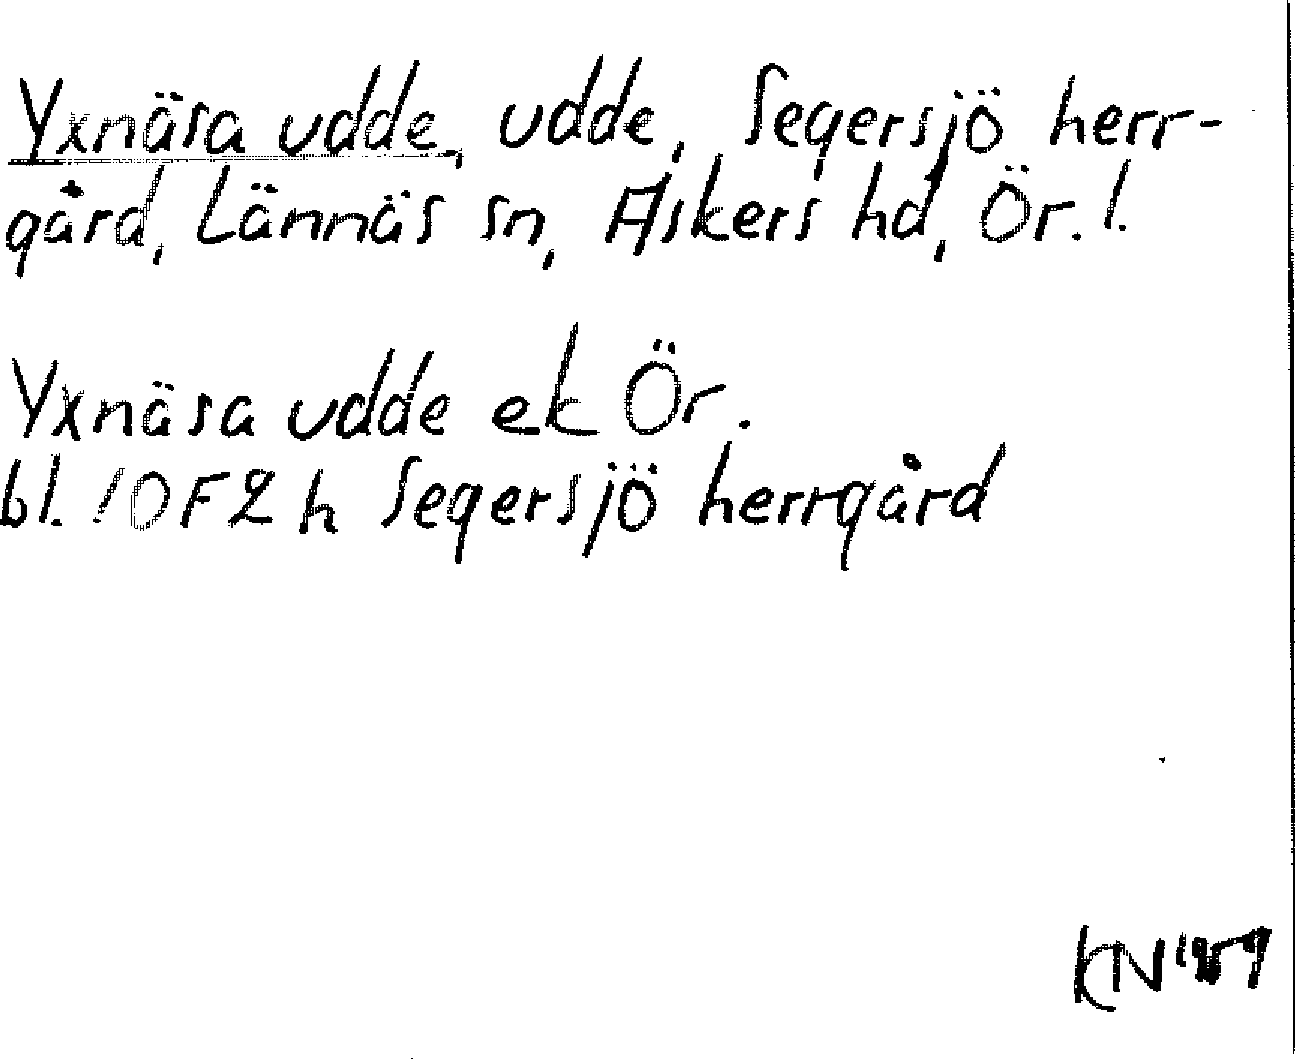 Yxnäsa udde, udde, Segersjö herr-
gård, Lännäs sn, Askers hd, Ör. l.
Yxnäsa udde ek Ör.
bl. 10F2h Segersjö herrgård
KN